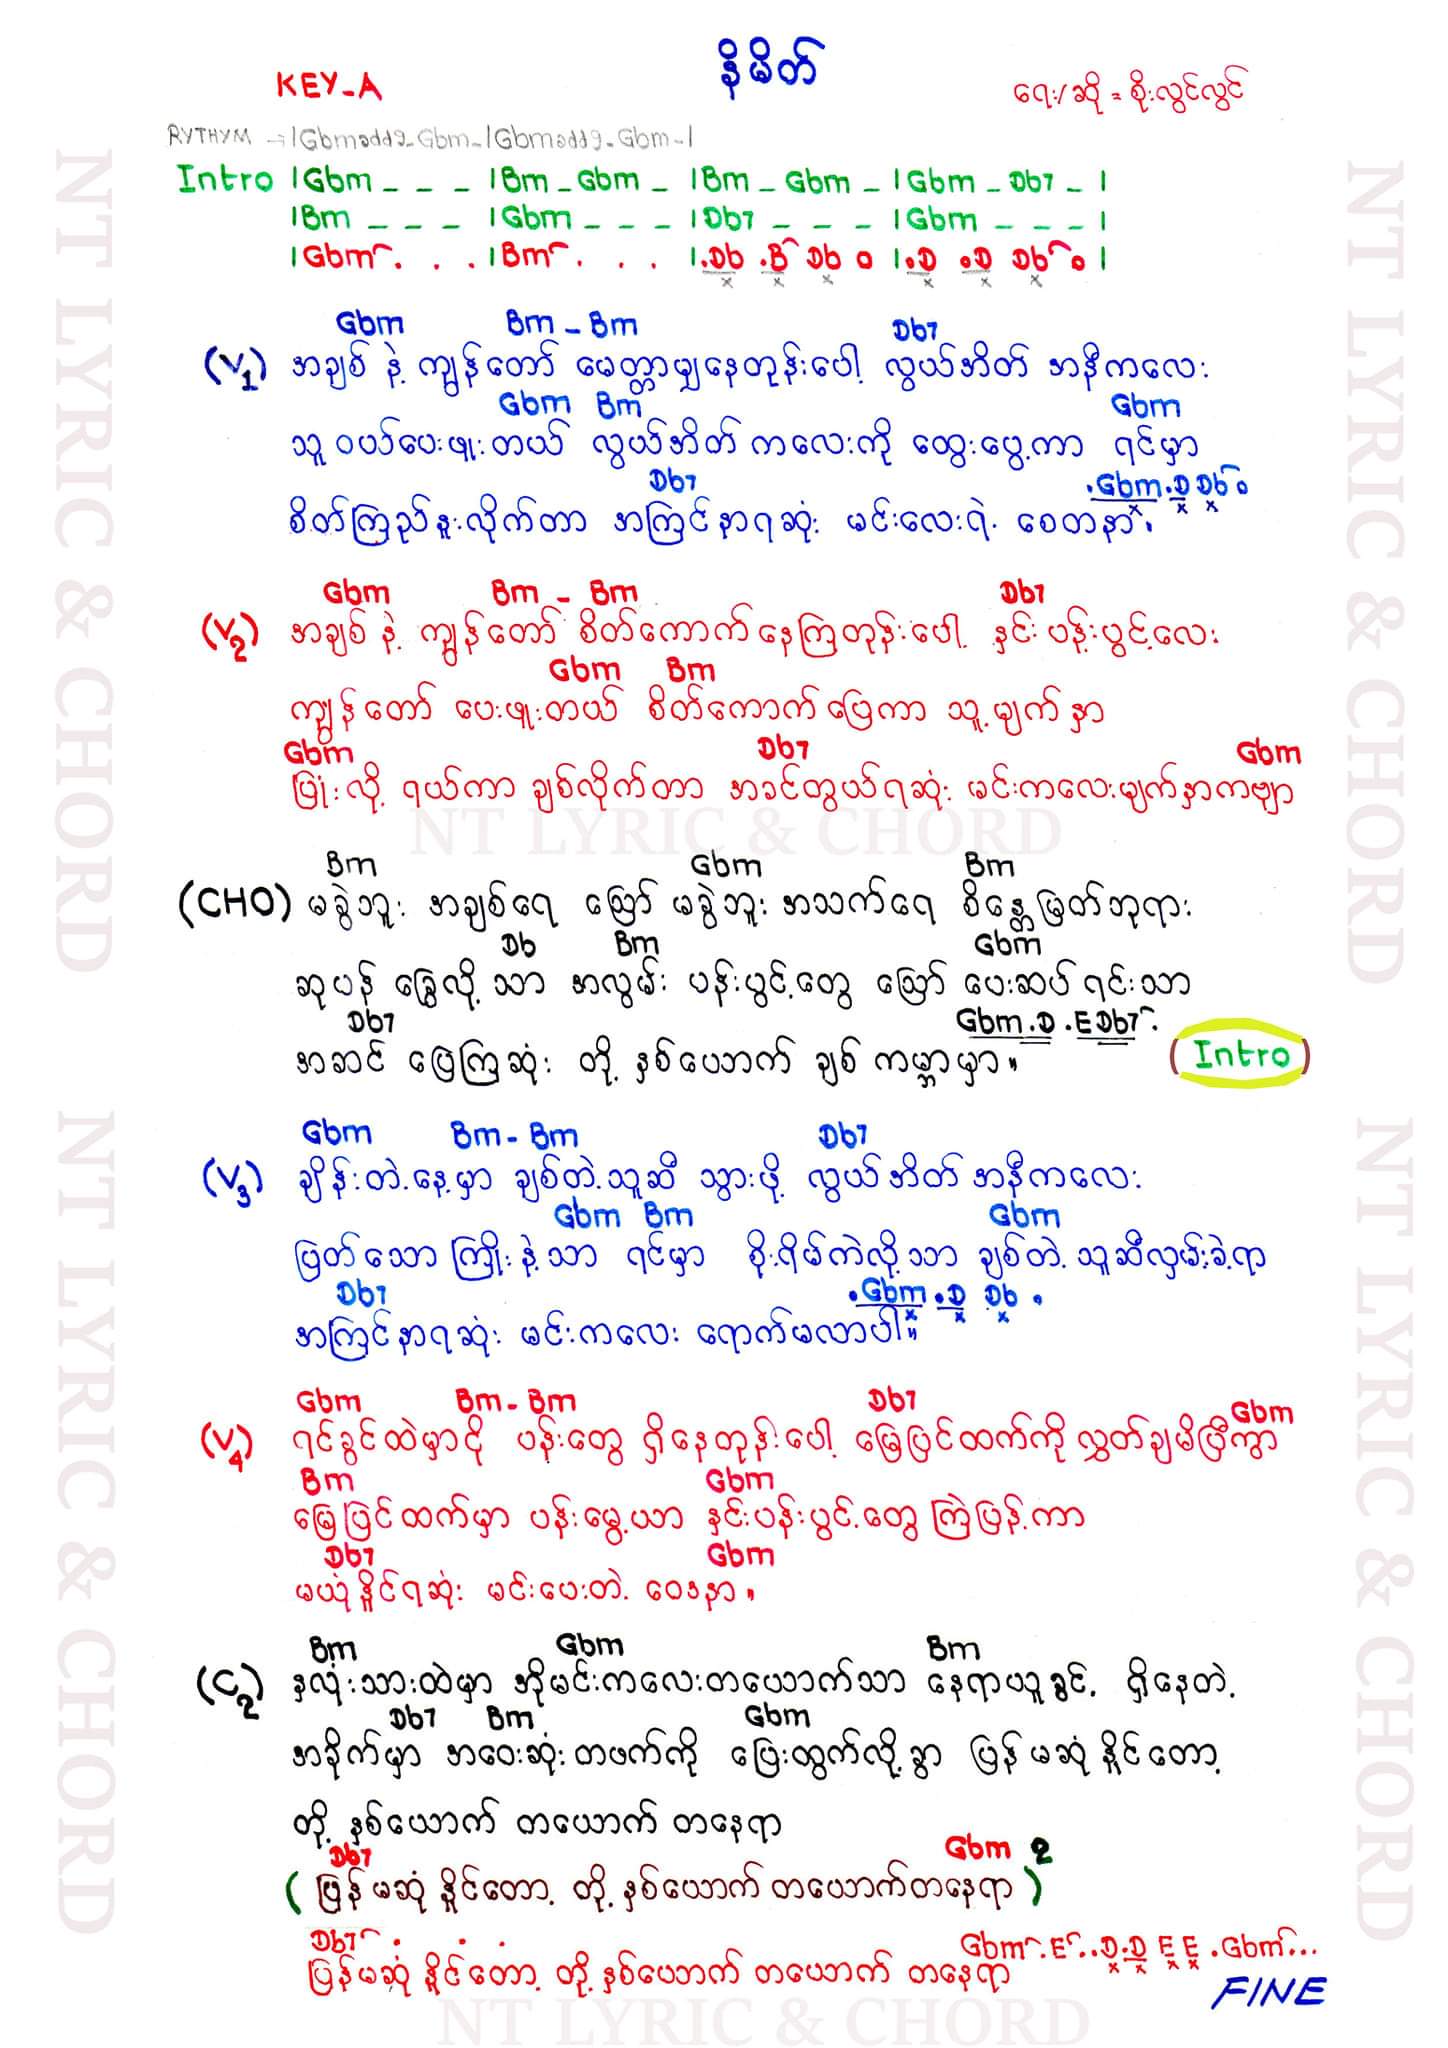 နိမိတ်
KEY-A
ရေး/ဆို = စိုးလွင်လွင်
RYTHYM → |Gbmadd9-Gbm-|Gbmadd9-Gbm-|
Intro |Gbm - - - |Bm - Gbm - |Bm - Gbm - |Gbm - Db7 - |
|Bm - - - |Gbm - - - |Db7 - - - |Gbm - - - |
|Gbm . . . |Bm . . . |.Db .B Db o |.D .D Db o |
Gbm Bm - Bm Db7
(V1) အချစ် နဲ့ ကျွန်တော် မေတ္တာမျှနေတုန်းပေါ့ လွယ်အိတ် အနီကလေး
Gbm Bm Gbm
သူ ဝယ်ပေးဖူးတယ် လွယ်အိတ် ကလေးကို ထွေးပွေ့ကာ ရင်မှာ
Db7 .Gbm.D Db o
စိတ်ကြည်နူးလိုက်တာ အကြင်နာရဆုံး မင်းလေးရဲ့ စေတနာ။
Gbm Bm - Bm Db7
(V2) အချစ် နဲ့ ကျွန်တော် စိတ်ကောက်နေကြတုန်းပေါ့ နှင်းပန်းပွင့်လေး
Gbm Bm
ကျွန်တော် ပေးဖူးတယ် စိတ်ကောက်ပြေကာ သူ့မျက်နှာ
Gbm Db7 Gbm
ပြုံးလို့ ရယ်ကာ ချစ်လိုက်တာ အခင်တွယ်ရဆုံး မင်းကလေးမျက်နှာကဗျာ
Bm Gbm Bm
(CHO) မခွဲဘူး အချစ်ရေ ဪ မခွဲဘူး အသက်ရေ စိန္တေမြတ်ဘုရား
Db Bm Gbm
ဆုပန် ခြွေလို့သာ အလွမ်း ပန်းပွင့်တွေ ဪ ပေးဆပ်ရင်းသာ
Db7 Gbm.D .E Db7 .
အဆင် ပြေကြဆုံး တို့ နှစ်ယောက် ချစ် ကမ္ဘာမှာ။ (Intro)
Gbm Bm - Bm Db7
(V3) ချိန်းတဲ့နေ့မှာ ချစ်တဲ့သူဆီ သွားဖို့ လွယ်အိတ် အနီကလေး
Gbm Bm Gbm
ပြတ်သော ကြိုးနဲ့သာ ရင်မှာ စိုးရိမ်ကဲလို့သာ ချစ်တဲ့ သူဆီလှမ်းခဲ့ရာ
Db7 .Gbm .D Db .
အကြင်နာရဆုံး မင်းကလေး ရောက်မလာပါ။
Gbm Bm - Bm Db7 Gbm
(V4) ရင်ခွင်ထဲမှာငို ပန်းတွေ ရှိနေတုန်းပေါ့ မြေပြင်ထက်ကို လွှတ်ချမိပြီကွာ
Bm Gbm
မြေပြင်ထက်မှာ ပန်းမွေ့ယာ နှင်းပန်းပွင့်တွေ ကြဲပြန့်ကာ
Db7 Gbm
မယုံနိူင်ရဆုံး မင်းပေးတဲ့ ဝေဒနာ။
Bm Gbm Bm
(C2) နှလုံးသားထဲမှာ အိုမင်းကလေးတယောက်သာ နေရာယူခွင့် ရှိနေတဲ့
Db7 Bm Gbm
အခိုက်မှာ အဝေးဆုံးတဖက်ကို ပြေးထွက်လို့ခွာ ပြန်မဆုံနိူင်တော့
တို့ နှစ်ယောက် တယောက် တနေရာ
Db7 Gbm 2
(ပြန်မဆုံ နိူင်တော့ တို့ နှစ်ယောက် တယောက်တနေရာ)
Db7 . . . Gbm.E..D.D E E .Gbm...
ပြန်မဆုံ နိူင်တော့ တို့နှစ်ယောက် တယောက် တနေရာ
FINE
NT LYRIC & CHORD
NT LYRIC & CHORD
NT LYRIC & CHORD
NT LYRIC & CHORD
NT LYRIC & CHORD
NT LYRIC & CHORD